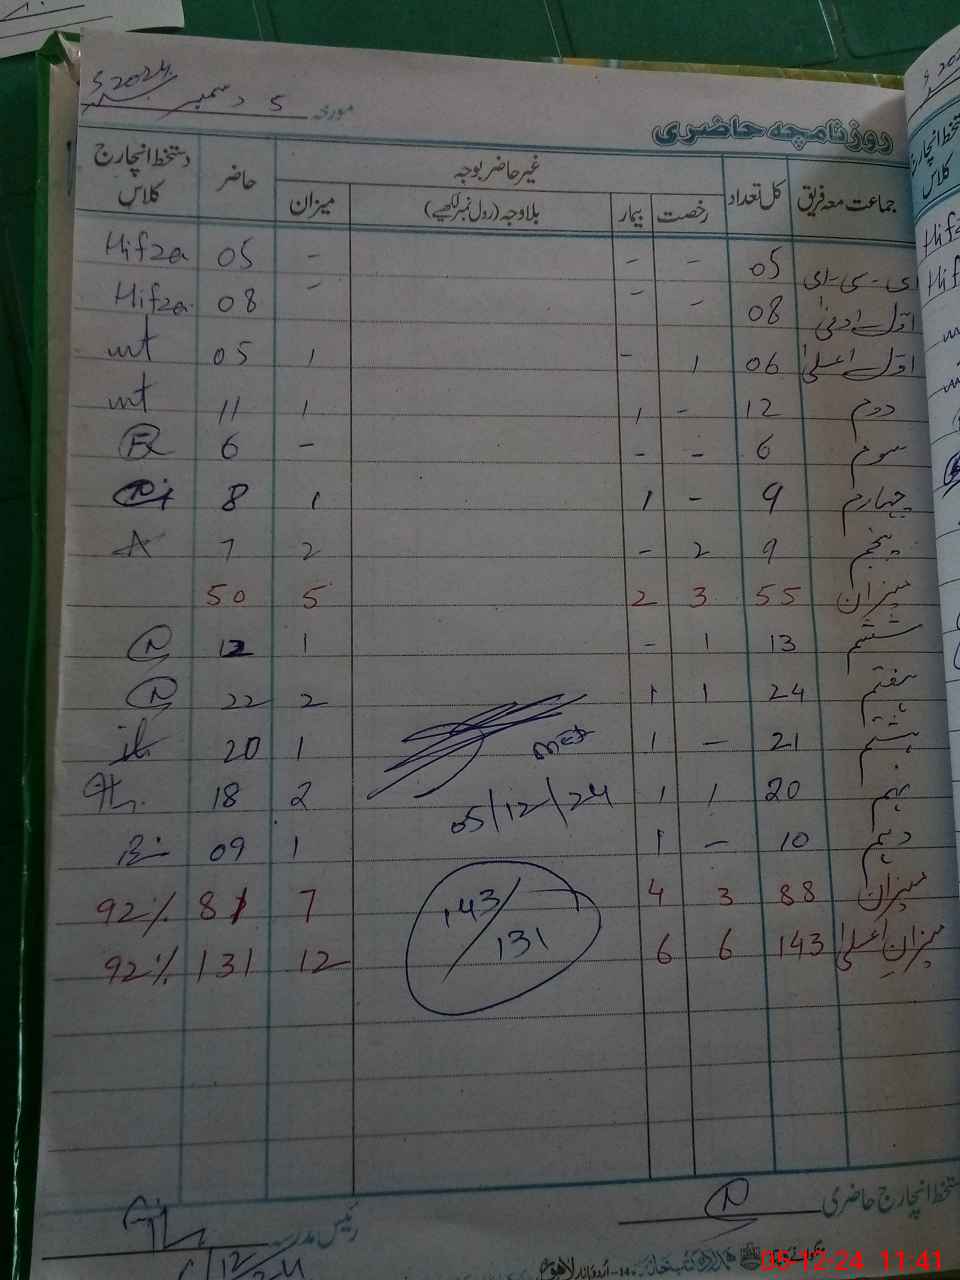 مورخہ 5 دسمبر 2024ء
روزنامچہ حاضری
جماعت معہ فریق کل تعداد غیر حاضر بوجہ حاضر دستخط انچارج کلاس
رخصت بیمار بلاوجہ (رول نمبر لکھیے) میزان
ای-سی-ای 05 - - - 05 Hifza
اول ادنیٰ 08 - - - 08 Hifza
اول اعلیٰ 06 1 - 1 05 mt
دوم 12 - 1 1 11 mt
سوم 6 - - - 6
چہارم 9 - 1 1 8
پنجم 9 2 - 2 7 A
میزان 55 3 2 5 50
ششم 13 1 - 1 12
ہفتم 24 1 1 2 22
ہشتم 21 - 1 1 20
نہم 20 1 1 2 18
05/12/24
دہم 10 - 1 1 09
میزان 88 3 4 7 81 92%
143/131
میزان اعلیٰ 143 6 6 12 131 92%
دستخط انچارج حاضری
رئیس مدرسہ
اردو بازار لاہور
05-12-24 11:41